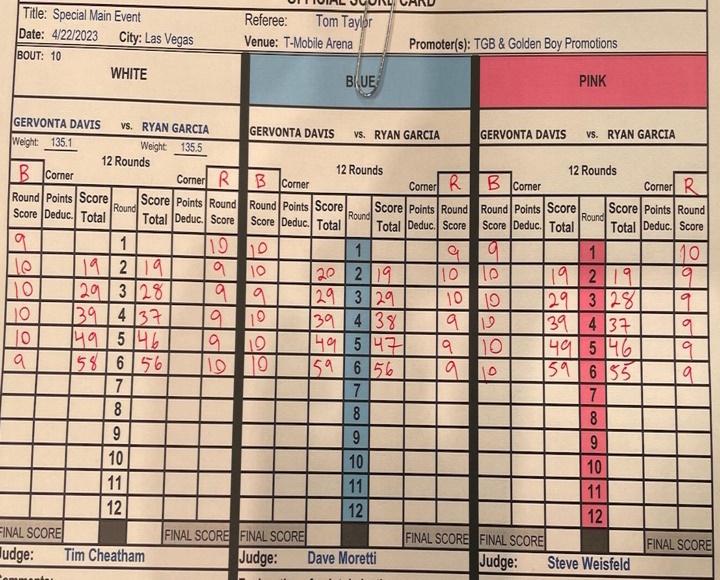 OFFICIAL SCORE CARD
Title: Special Main Event Referee: Tom Taylor
Date: 4/22/2023 City: Las Vegas Venue: T-Mobile Arena Promoter(s): TGB & Golden Boy Promotions
BOUT: 10
WHITE BLUE PINK
GERVONTA DAVIS vs. RYAN GARCIA GERVONTA DAVIS vs. RYAN GARCIA GERVONTA DAVIS vs. RYAN GARCIA
Weight: 135.1 Weight: 135.5
12 Rounds 12 Rounds 12 Rounds
B Corner Corner R B Corner Corner R B Corner Corner R
Round Points Score Round Score Points Round Round Points Score Round Score Points Round Round Points Score Round Score Points Round
Score Deduc. Total Total Deduc. Score Score Deduc. Total Total Deduc. Score Score Deduc. Total Total Deduc. Score
9 1 10 10 1 9 9 1 10
10 19 2 19 9 10 20 2 19 10 10 19 2 19 9
10 29 3 28 9 9 29 3 29 10 10 29 3 28 9
10 39 4 37 9 10 39 4 38 9 10 39 4 37 9
10 49 5 46 9 10 49 5 47 9 10 49 5 46 9
9 58 6 56 10 10 59 6 56 9 10 59 6 55 9
7 7 7
8 8 8
9 9 9
10 10 10
11 11 11
12 12 12
FINAL SCORE FINAL SCORE FINAL SCORE FINAL SCORE FINAL SCORE FINAL SCORE
Judge: Tim Cheatham Judge: Dave Moretti Judge: Steve Weisfeld